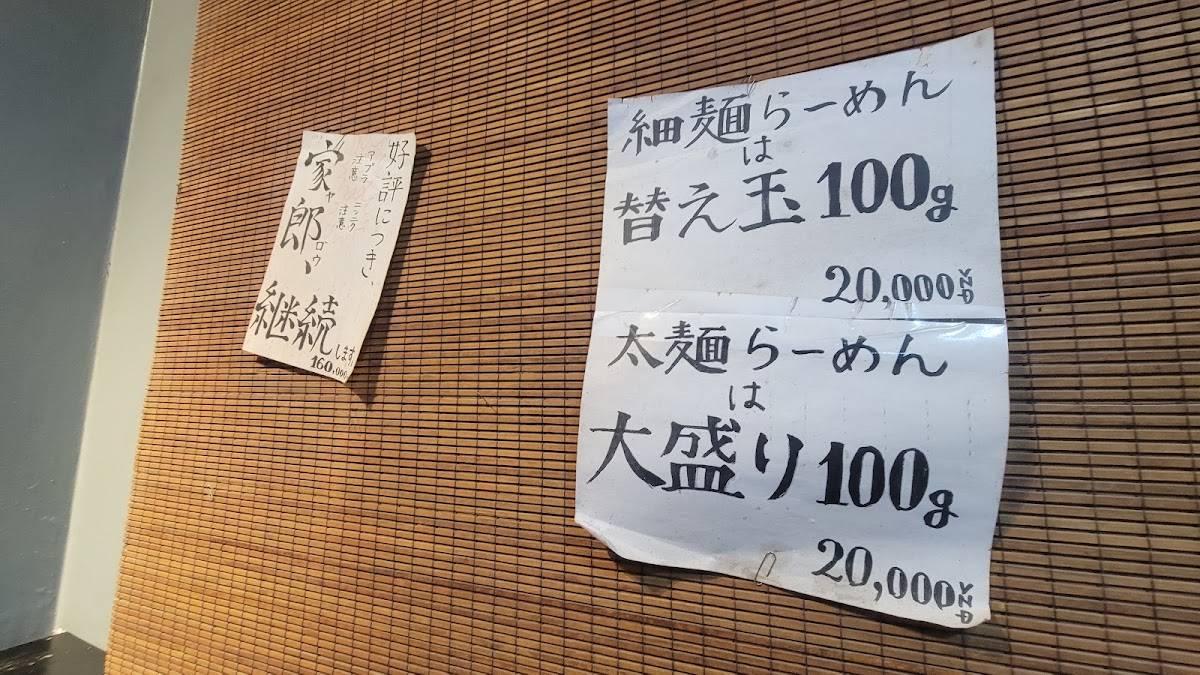 好評につき、
アブラ注意
ニンニク注意
家郎、
ジャロウ
継続します
160,000
細麺らーめん
は
替え玉100g
20,000VND
太麺らーめん
は
大盛り100g
20,000VND